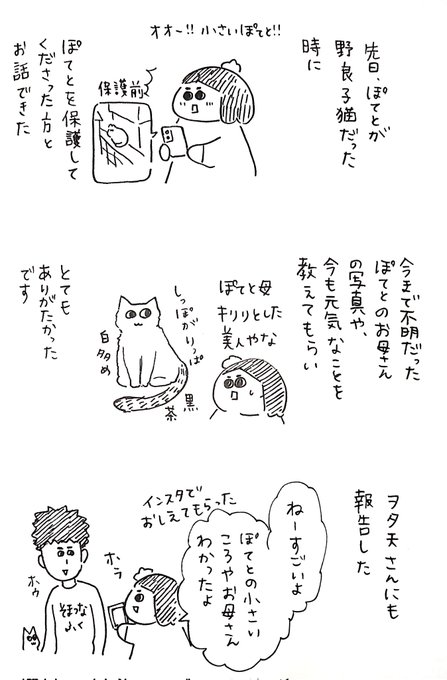 オオ〜!! 小さいぽてと!!
先日、ぽてとが
野良子猫だった
時に
保護前
ぽてとを保護して
くださった方と
お話できた
今まで不明だった
ぽてとのお母さん
の写真や、
今も元気なことを
教えてもらい
ぽてと母
キリリとした
美人やな
しっぽがりっぱ
白多め
黒
茶
とても
ありがたかった
です
ヲタ夫さんにも
報告した
ねーすごいよ
ぽてとの小さい
ころやお母さん
わかったよ
インスタで
おしえてもらった
ホラ
ホゥ
そまつな
ふく